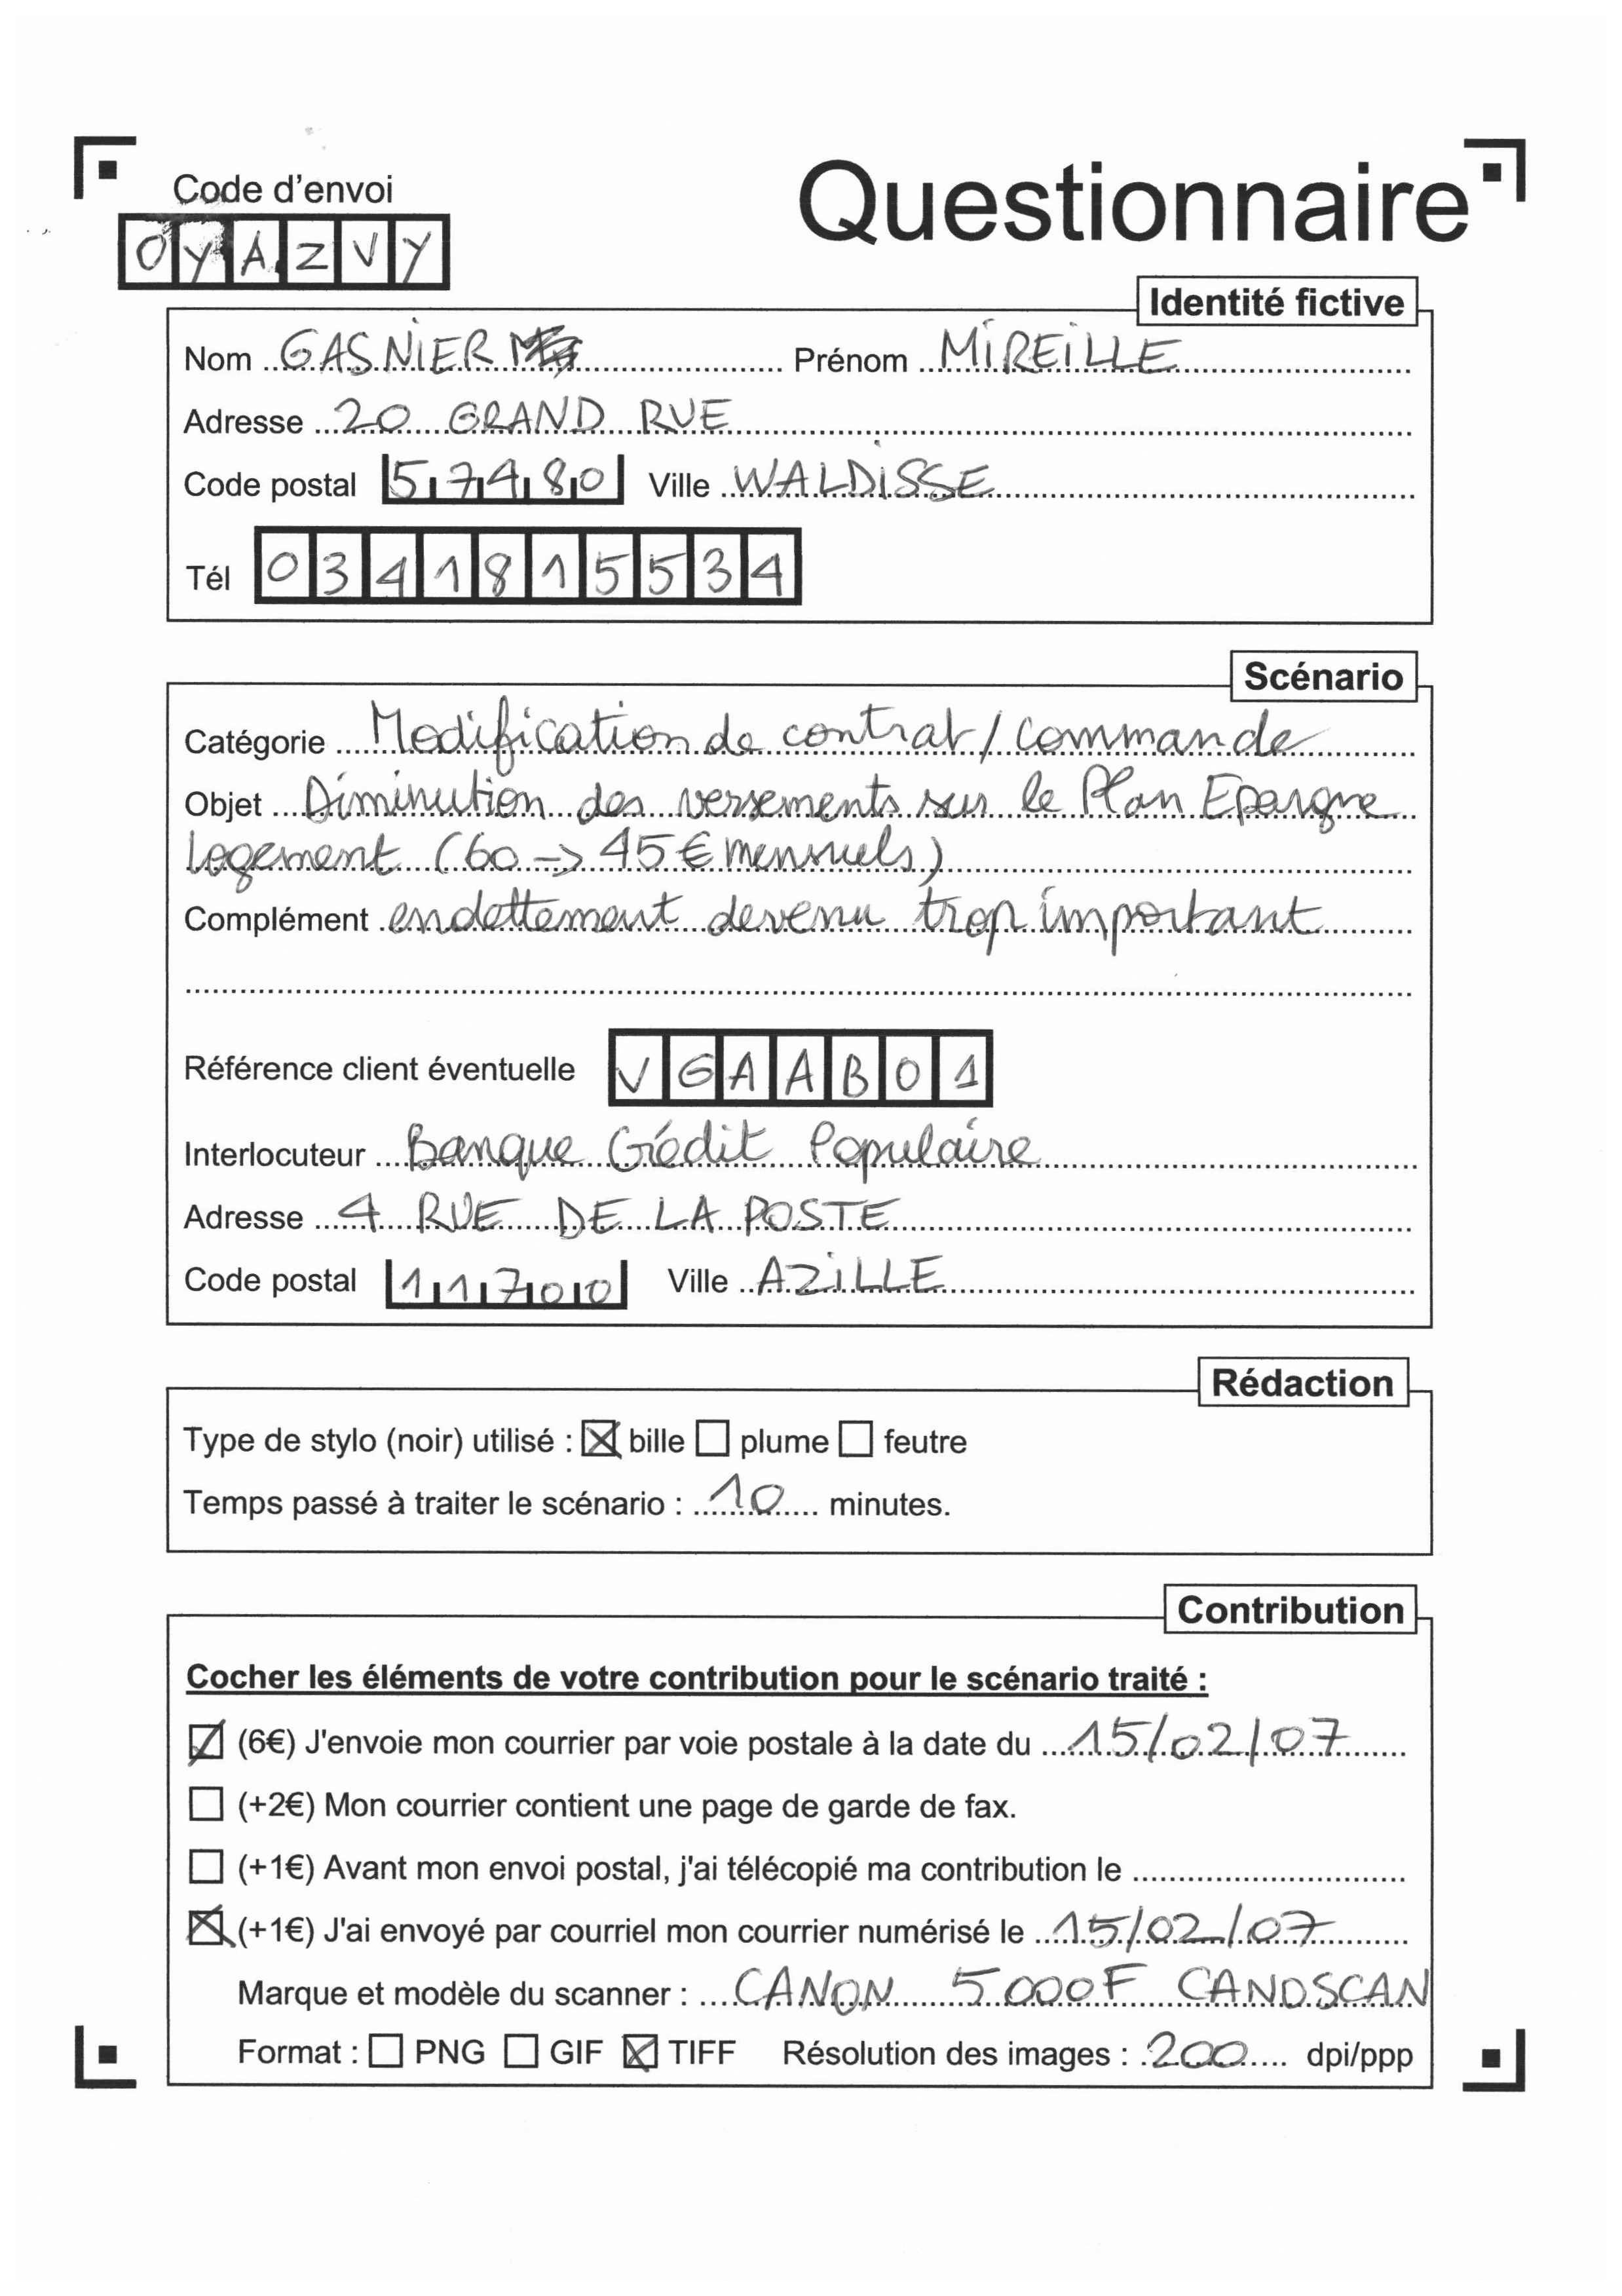 Questionnaire
Code d'envoi
OYAZVY
Identité fictive
Nom GASNIER Prénom MIREILLE
Adresse 20 GRAND RUE
Code postal 57480 Ville WALDISSE
Tél 0341815534
Scénario
Catégorie Modification de contrat / commande
Objet Diminution des versements sur le Plan Epargne
Logement (60 -> 45 € mensuels)
Complément endettement devenu trop important
Référence client éventuelle VGAAB01
Interlocuteur Banque Crédit Populaire
Adresse 4 RUE DE LA POSTE
Code postal 11700 Ville AZILLE
Rédaction
Type de stylo (noir) utilisé : ☒ bille ☐ plume ☐ feutre
Temps passé à traiter le scénario : 10 minutes.
Contribution
Cocher les éléments de votre contribution pour le scénario traité :
☒ (6€) J'envoie mon courrier par voie postale à la date du 15/02/07
☐ (+2€) Mon courrier contient une page de garde de fax.
☐ (+1€) Avant mon envoi postal, j'ai télécopié ma contribution le
☒ (+1€) J'ai envoyé par courriel mon courrier numérisé le 15/02/07
Marque et modèle du scanner : CANON 5000F CANOSCAN
Format : ☐ PNG ☐ GIF ☒ TIFF Résolution des images : 200 dpi/ppp